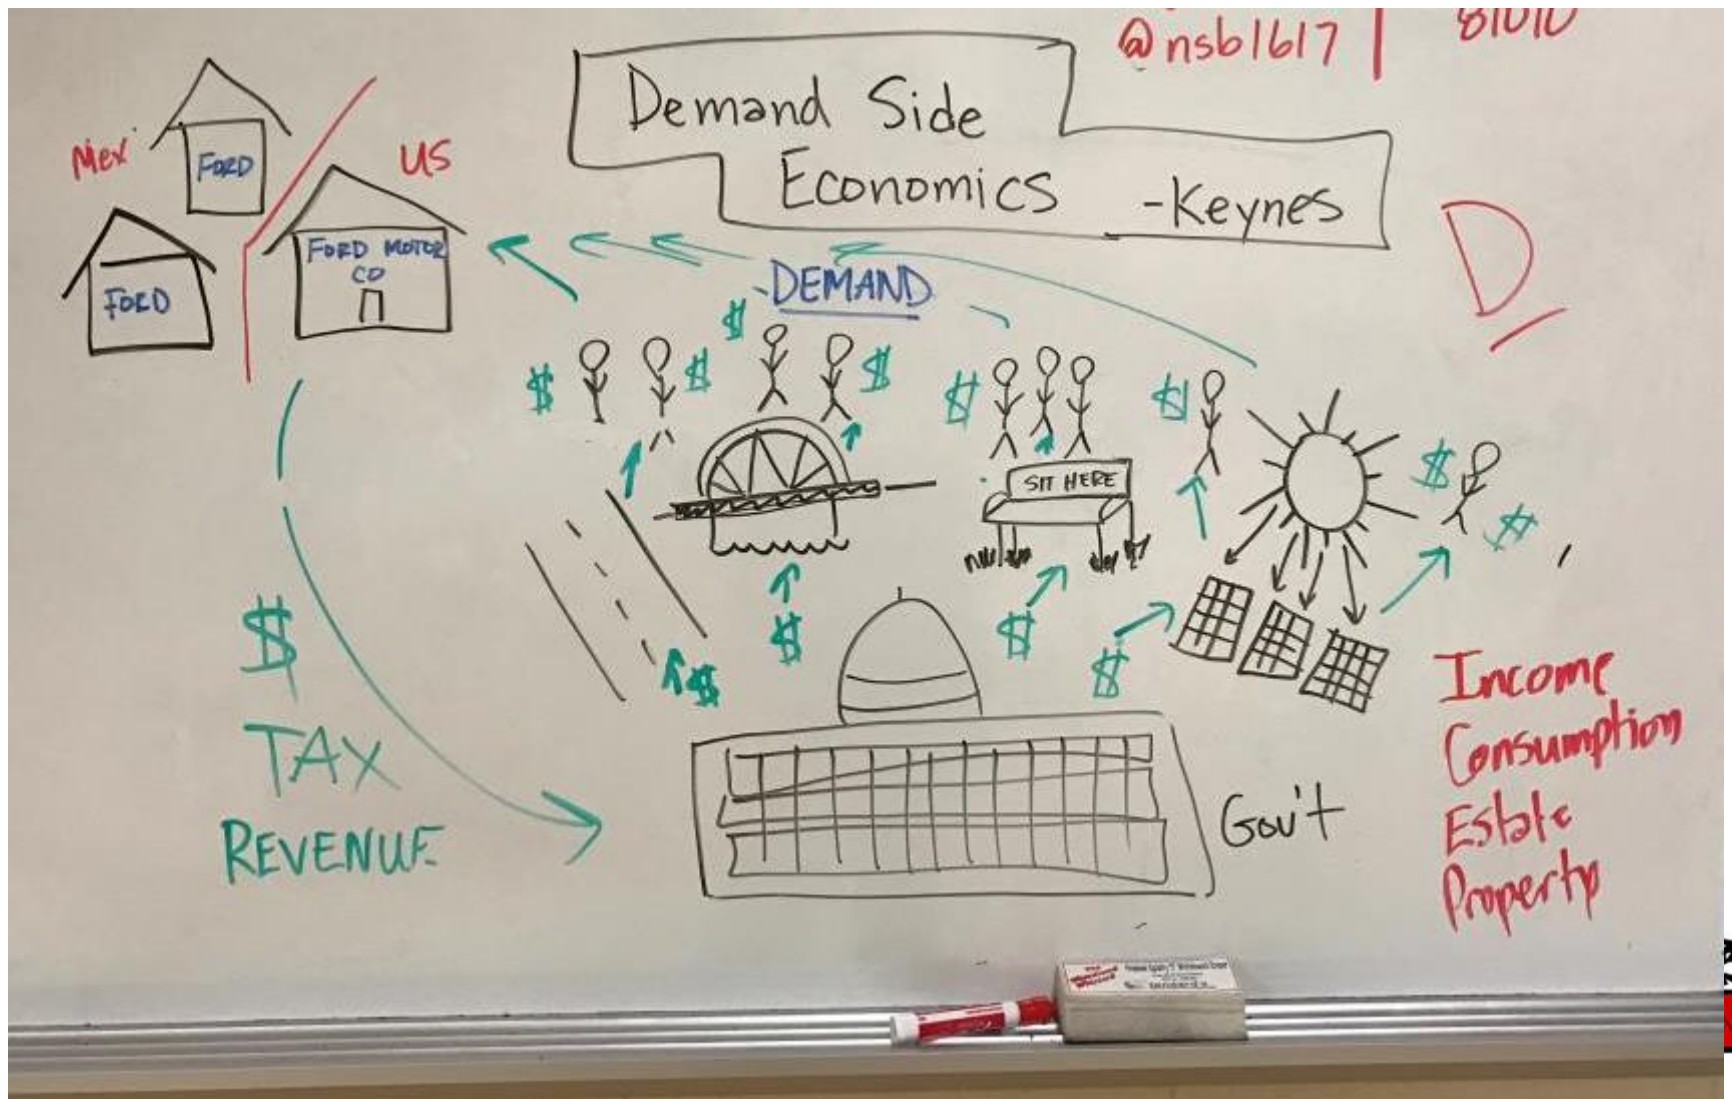 @nsb1617 | 81010
Demand Side
Economics -Keynes
Mex
US
FORD
FORD MOTOR
CO
FORD
DEMAND
D
$
$
$
$
$
$
$
$
SIT HERE
$
$
$
$
$
TAX
REVENUE
Gov't
Income
Consumption
Estate
Property